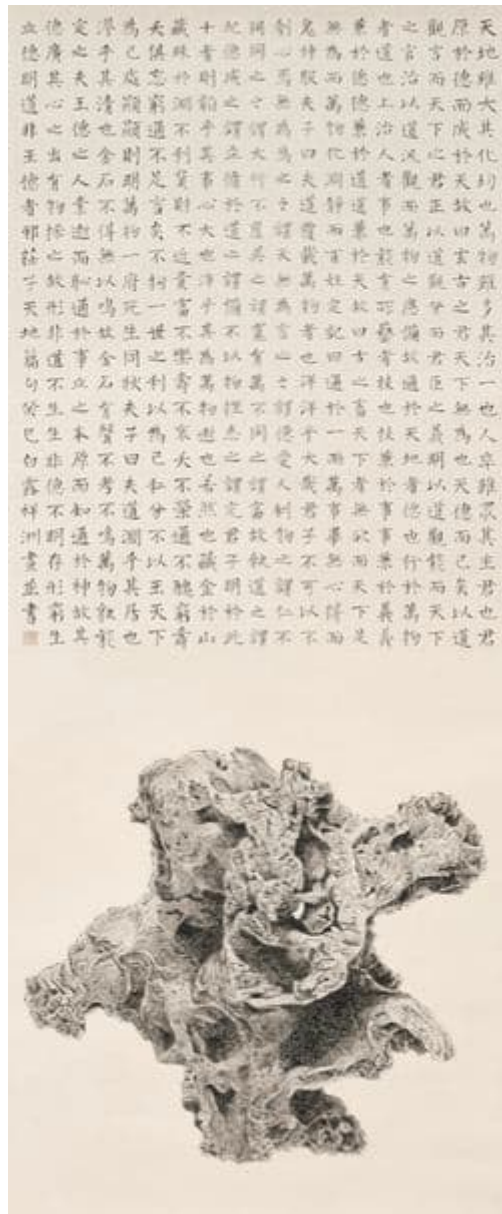 天地雖大其化均也萬物雖多其治一也人卒雖眾其主君也君
原於德而成於天故曰玄古之君天下無為也天德而已矣以道
觀言而天下之君正以道觀分而君臣之義明以道觀能而天下
之官治以道汎觀而萬物之應備故通於天地者德也行於萬物
者道也上治人者事也能有所藝者技也技兼於事事兼於義義
兼於德德兼於道道兼於天故曰古之畜天下者無欲而天下足
無為而萬物化淵靜而百姓定記曰通於一而萬事畢無心得而
鬼神服夫子曰夫道覆載萬物者也洋洋乎大哉君子不可以不
刳心焉無為為之之謂天無為言之之謂德愛人利物之謂仁不
同同之之謂大行不崖異之謂寬有萬不同之謂富故執德之謂
紀德成之謂立循於道之謂備不以物挫志之謂完君子明於此
十者則韜乎其事心大也沛乎其為萬物逝也若然者藏金於山
藏珠於淵不利貨財不近貴富不樂壽不哀夭不榮通不醜窮壽
夭俱忘窮通不足言矣不拘一世之利以為己私分不以王天下
為己處顯顯則明萬物一府死生同狀夫子曰夫道淵乎其居也
漻乎其清也金石不得無以鳴故金石有聲不考不鳴萬物孰能
定之夫王德之人素逝而恥通於事立之本原而知通於神故其
德廣其心之出有物採之故形非道不生生非德不明存形窮生
立德明道非王德者邪莊子天地篇句癸巳白露祥洲畫並書